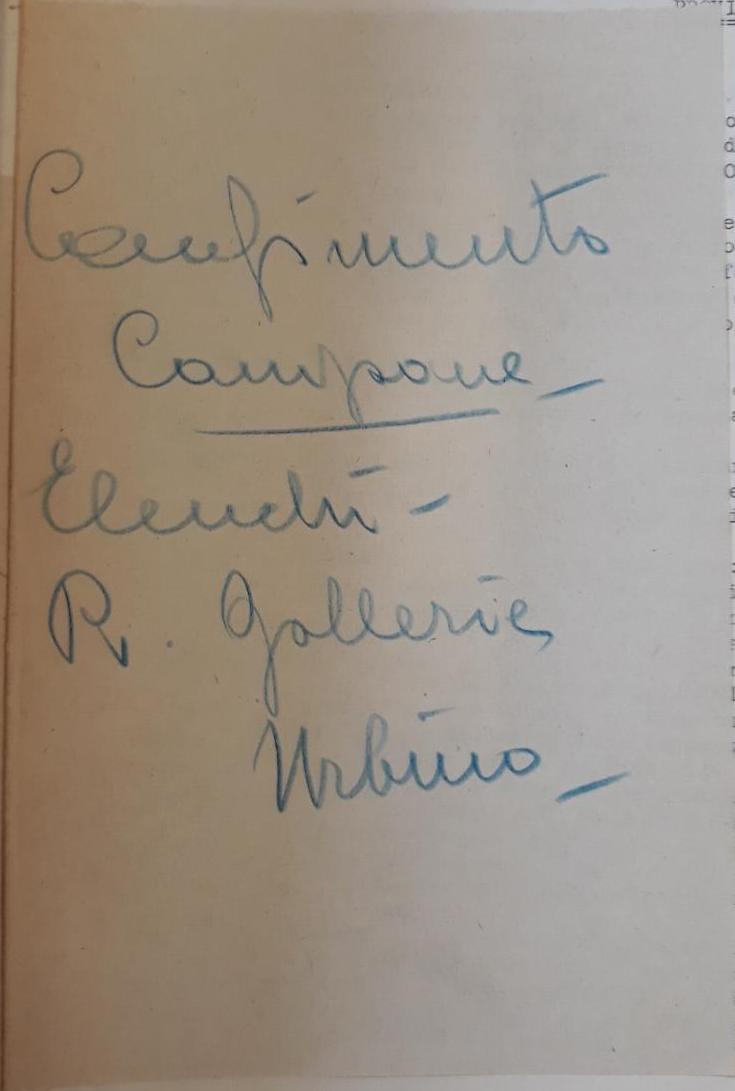 Confimento
Campane –
Elenchi –
R. Gallerie
Urbino –